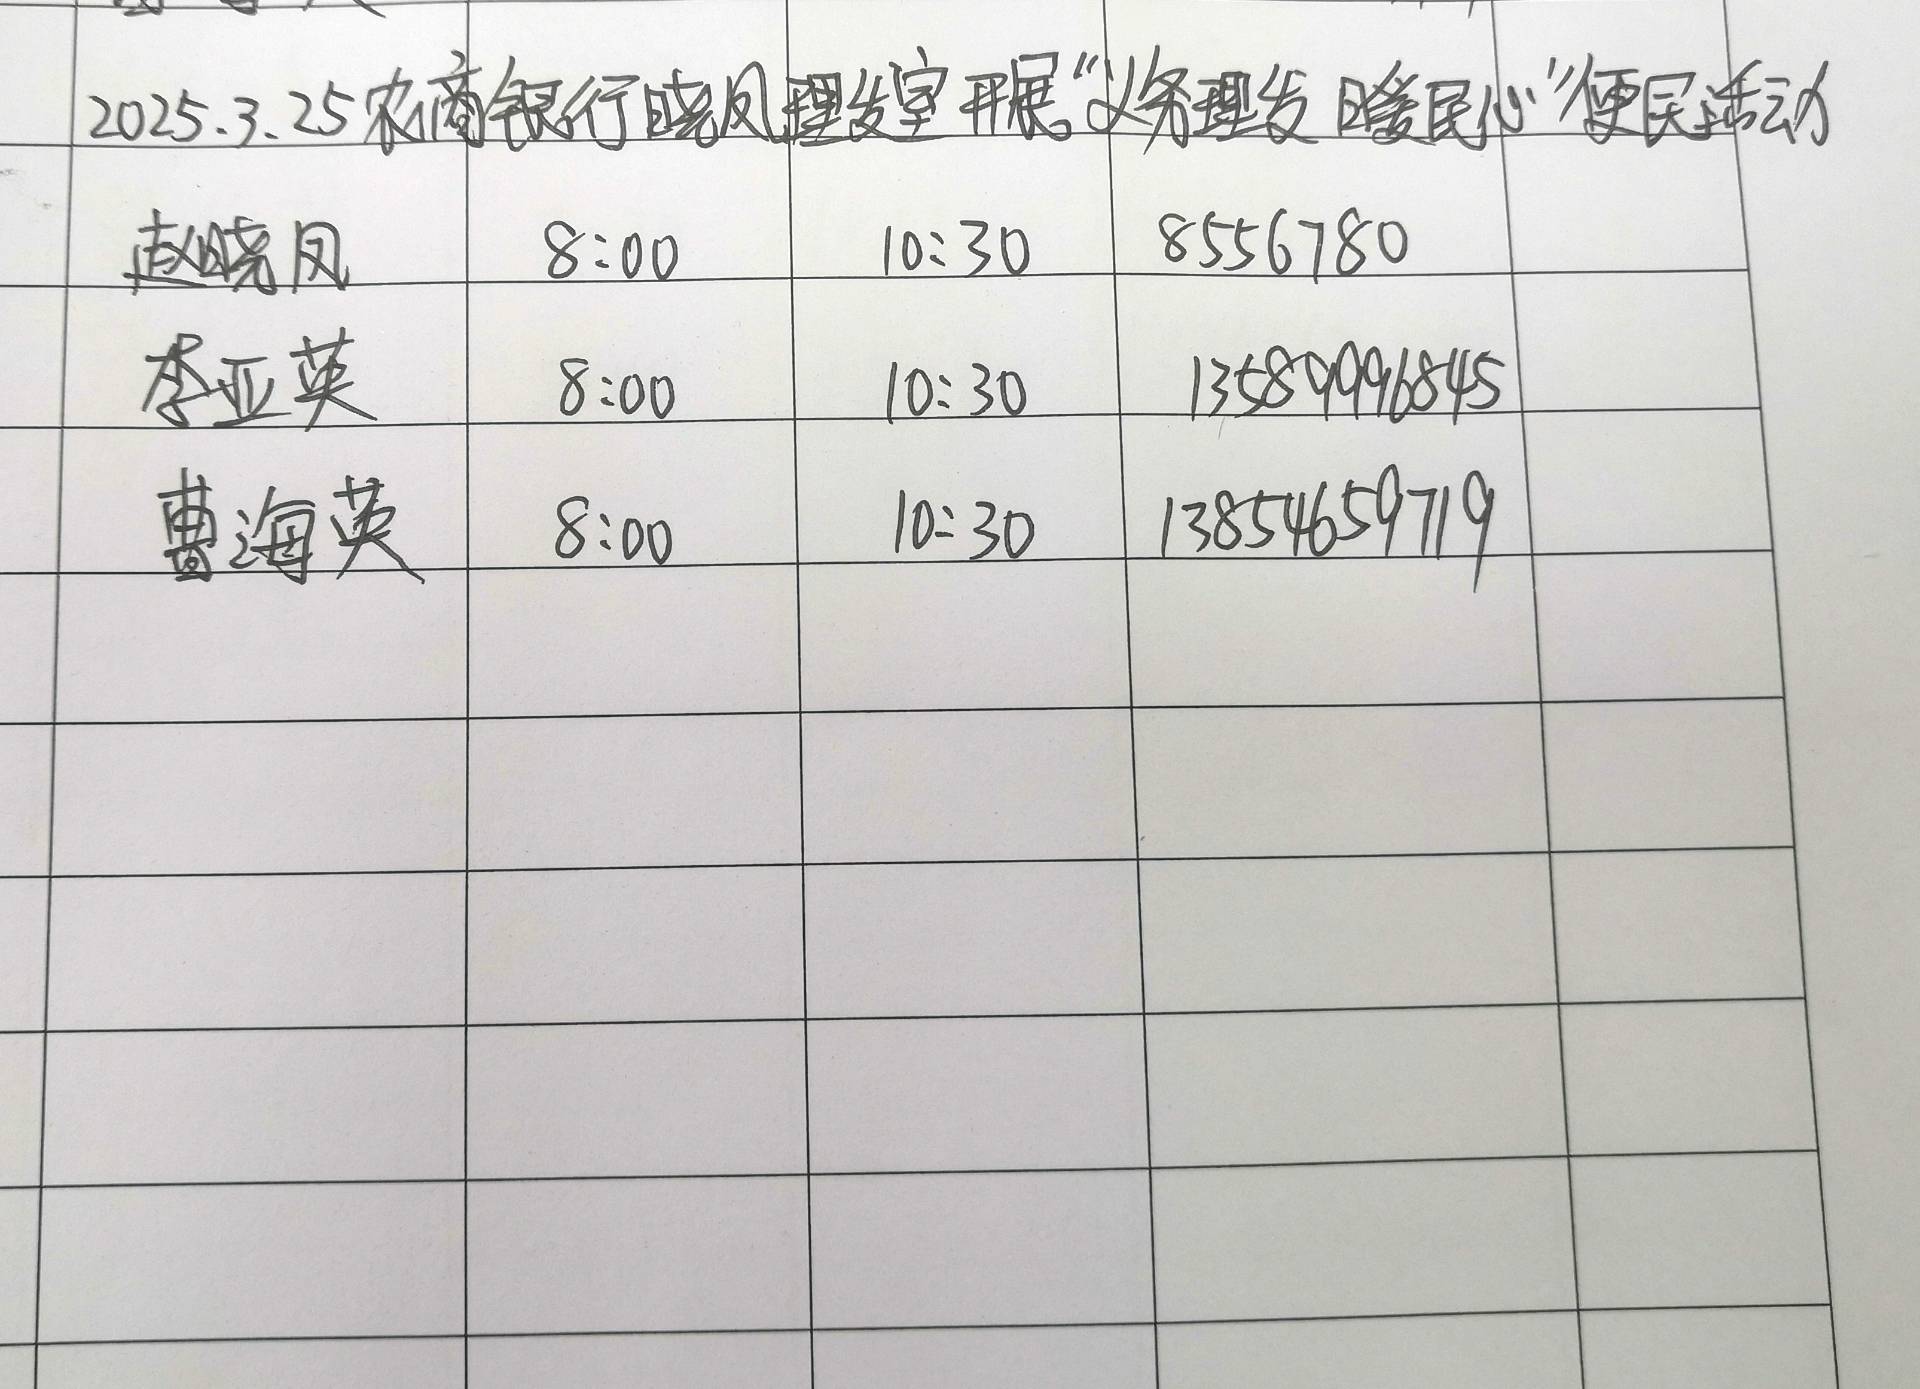 2025.3.25农商银行晓凤理发室开展“义务理发 暖民心”便民活动
赵晓凤 8:00 10:30 8556780
李亚英 8:00 10:30 13589996845
曹海英 8:00 10:30 13854659719